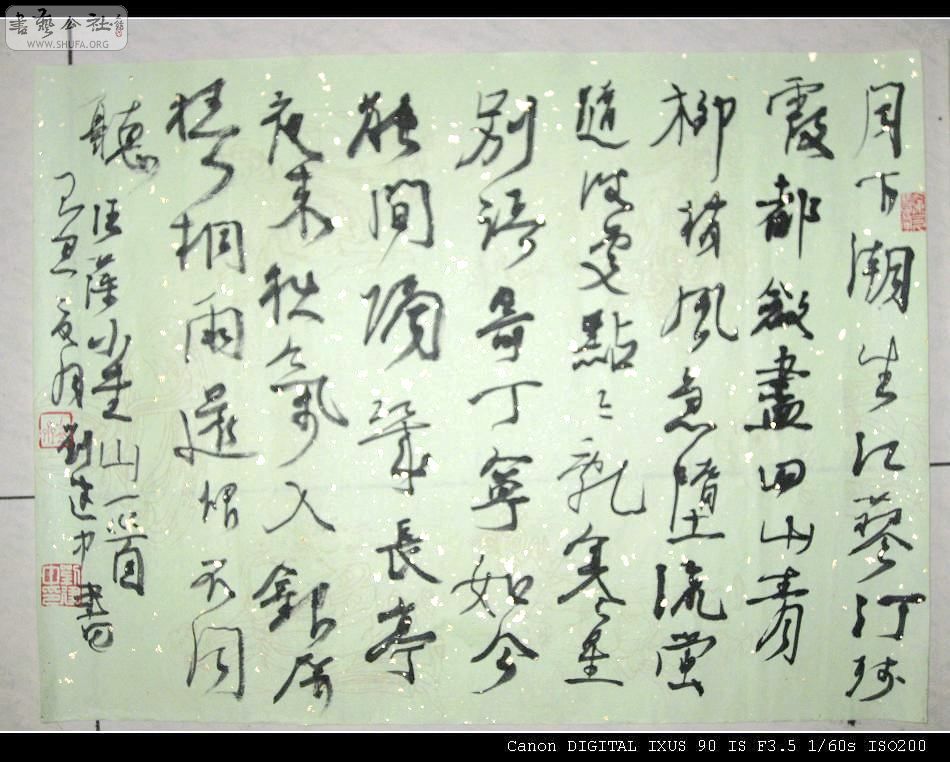 書藝公社
WWW.SHUFA.ORG
月下潮生红蓼汀殘
霞都斂盡四山青
柳梢風急墮流螢
隨波處點〻亂寒星
別語寄丁寧如今
能間隔幾長亭
夜來秋氣入銀屏
梧桐雨還恨不同
聽
汪藻小重山一首
己丑夏月劉建中書
Canon DIGITAL IXUS 90 IS F3.5 1/60s ISO200